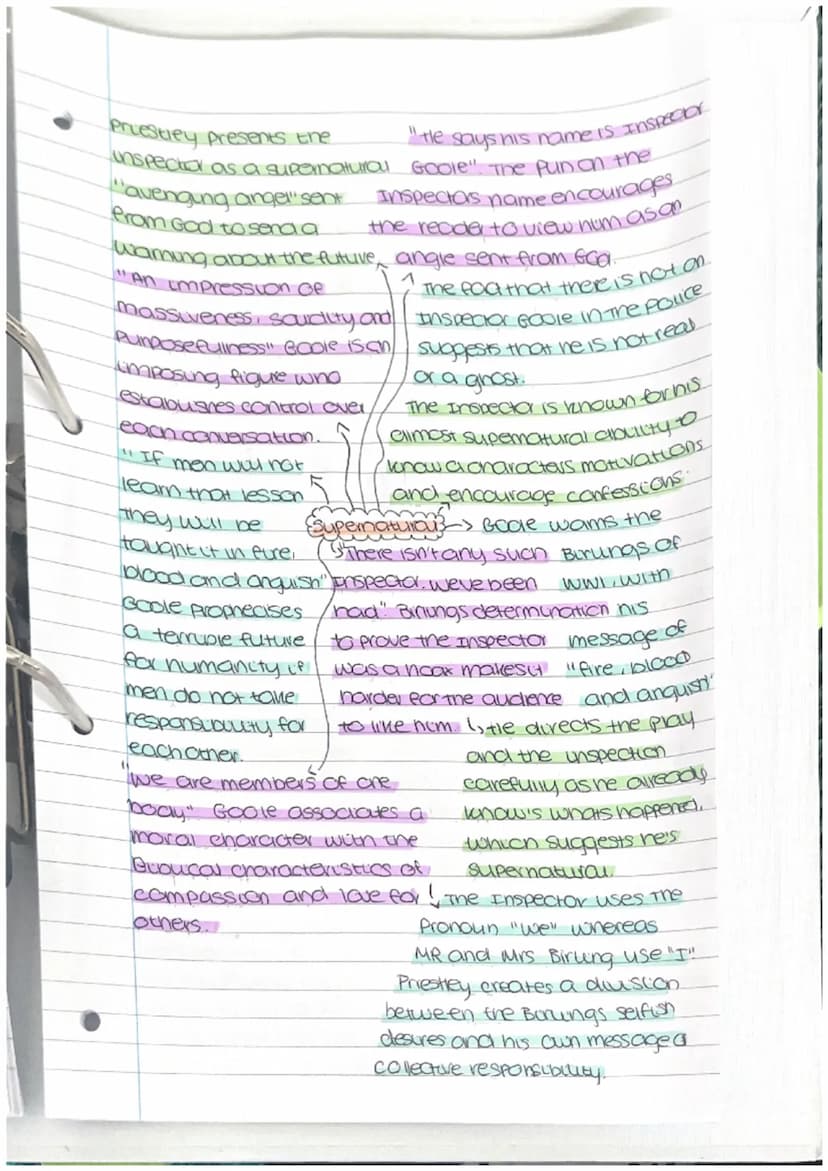 Priestley presents the
inspector as a supernatural
"avenging angel" sent
from God to send a
warning about the future.
"He says his name is Inspector
Goole". The pun on the
Inspectors name encourages
the reader to view him as an
angle sent from God.
"An impression of
massiveness, solidity and
purposefullness" Goole is an
imposing figure who
establishes control over
each conversation.
The fact that there is not an
Inspector Goole in the Police
suggests that he is not real
or a ghost.
The Inspector is known for his
almost supernatural ability to
know a characters motivations
and encourage confessions.
"If men will not
learn that lesson
they will be
taught it in fire,
blood and anguish"
Goole prophecises
a terrible future
for humanity if
men do not take
responsibility for
each other.
Supernatural
Goole warns the
Birlings of
WW1, with
his
message of
"fire, blood
and anguish"
"There isn't any such
inspector. weve been
had". Birlings determination
to prove the Inspector
was a hoax makes it
harder for the audience
to like him.
He directs the play
and the inspection
carefully as he already
know's whats happened,
which suggests he's
supernatural.
"We are members of one
body" Goole associates a
moral character with the
Biblical characteristics of
compassion and love for
others.
The Inspector uses the
Pronoun "We" whereas
MR and Mrs Birling use "I".
Priestley creates a division
between the Birlings selfish
desires and his own message of
collective responsibility.